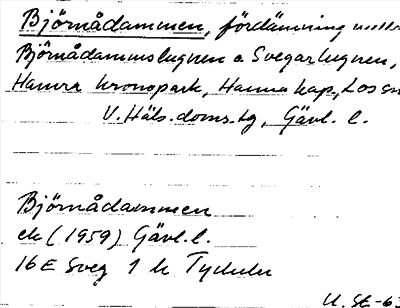 Björnådammen, fördämning mellan
Björnådammslugnen o Svegarlugnen,
Hamra kronopark, Hamra kap., Los sn
V. Häls. doms.tg, Gävl. l.
Björnådammen
ek (1959) Gävl. l.
16E Sveg 1 h
U. SE-63